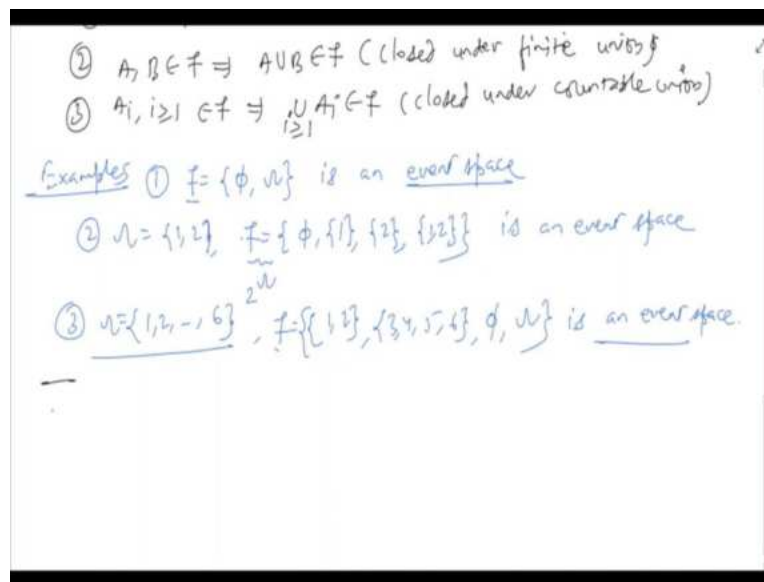 ② A, B ∈ F ⇒ A∪B ∈ F (closed under finite unions)
③ Ai, i≥1 ∈ F ⇒ ∪ Ai ∈ F (closed under countable unions)
i≥1
Examples ① F = {φ, Ω} is an event space
② Ω = {1, 2}, F = {φ, {1}, {2}, {1,2}} is an event space
2^Ω
③ Ω = {1, 2, -, 6}, F = {{1, 2}, {3, 4, 5, 6}, φ, Ω} is an event space.